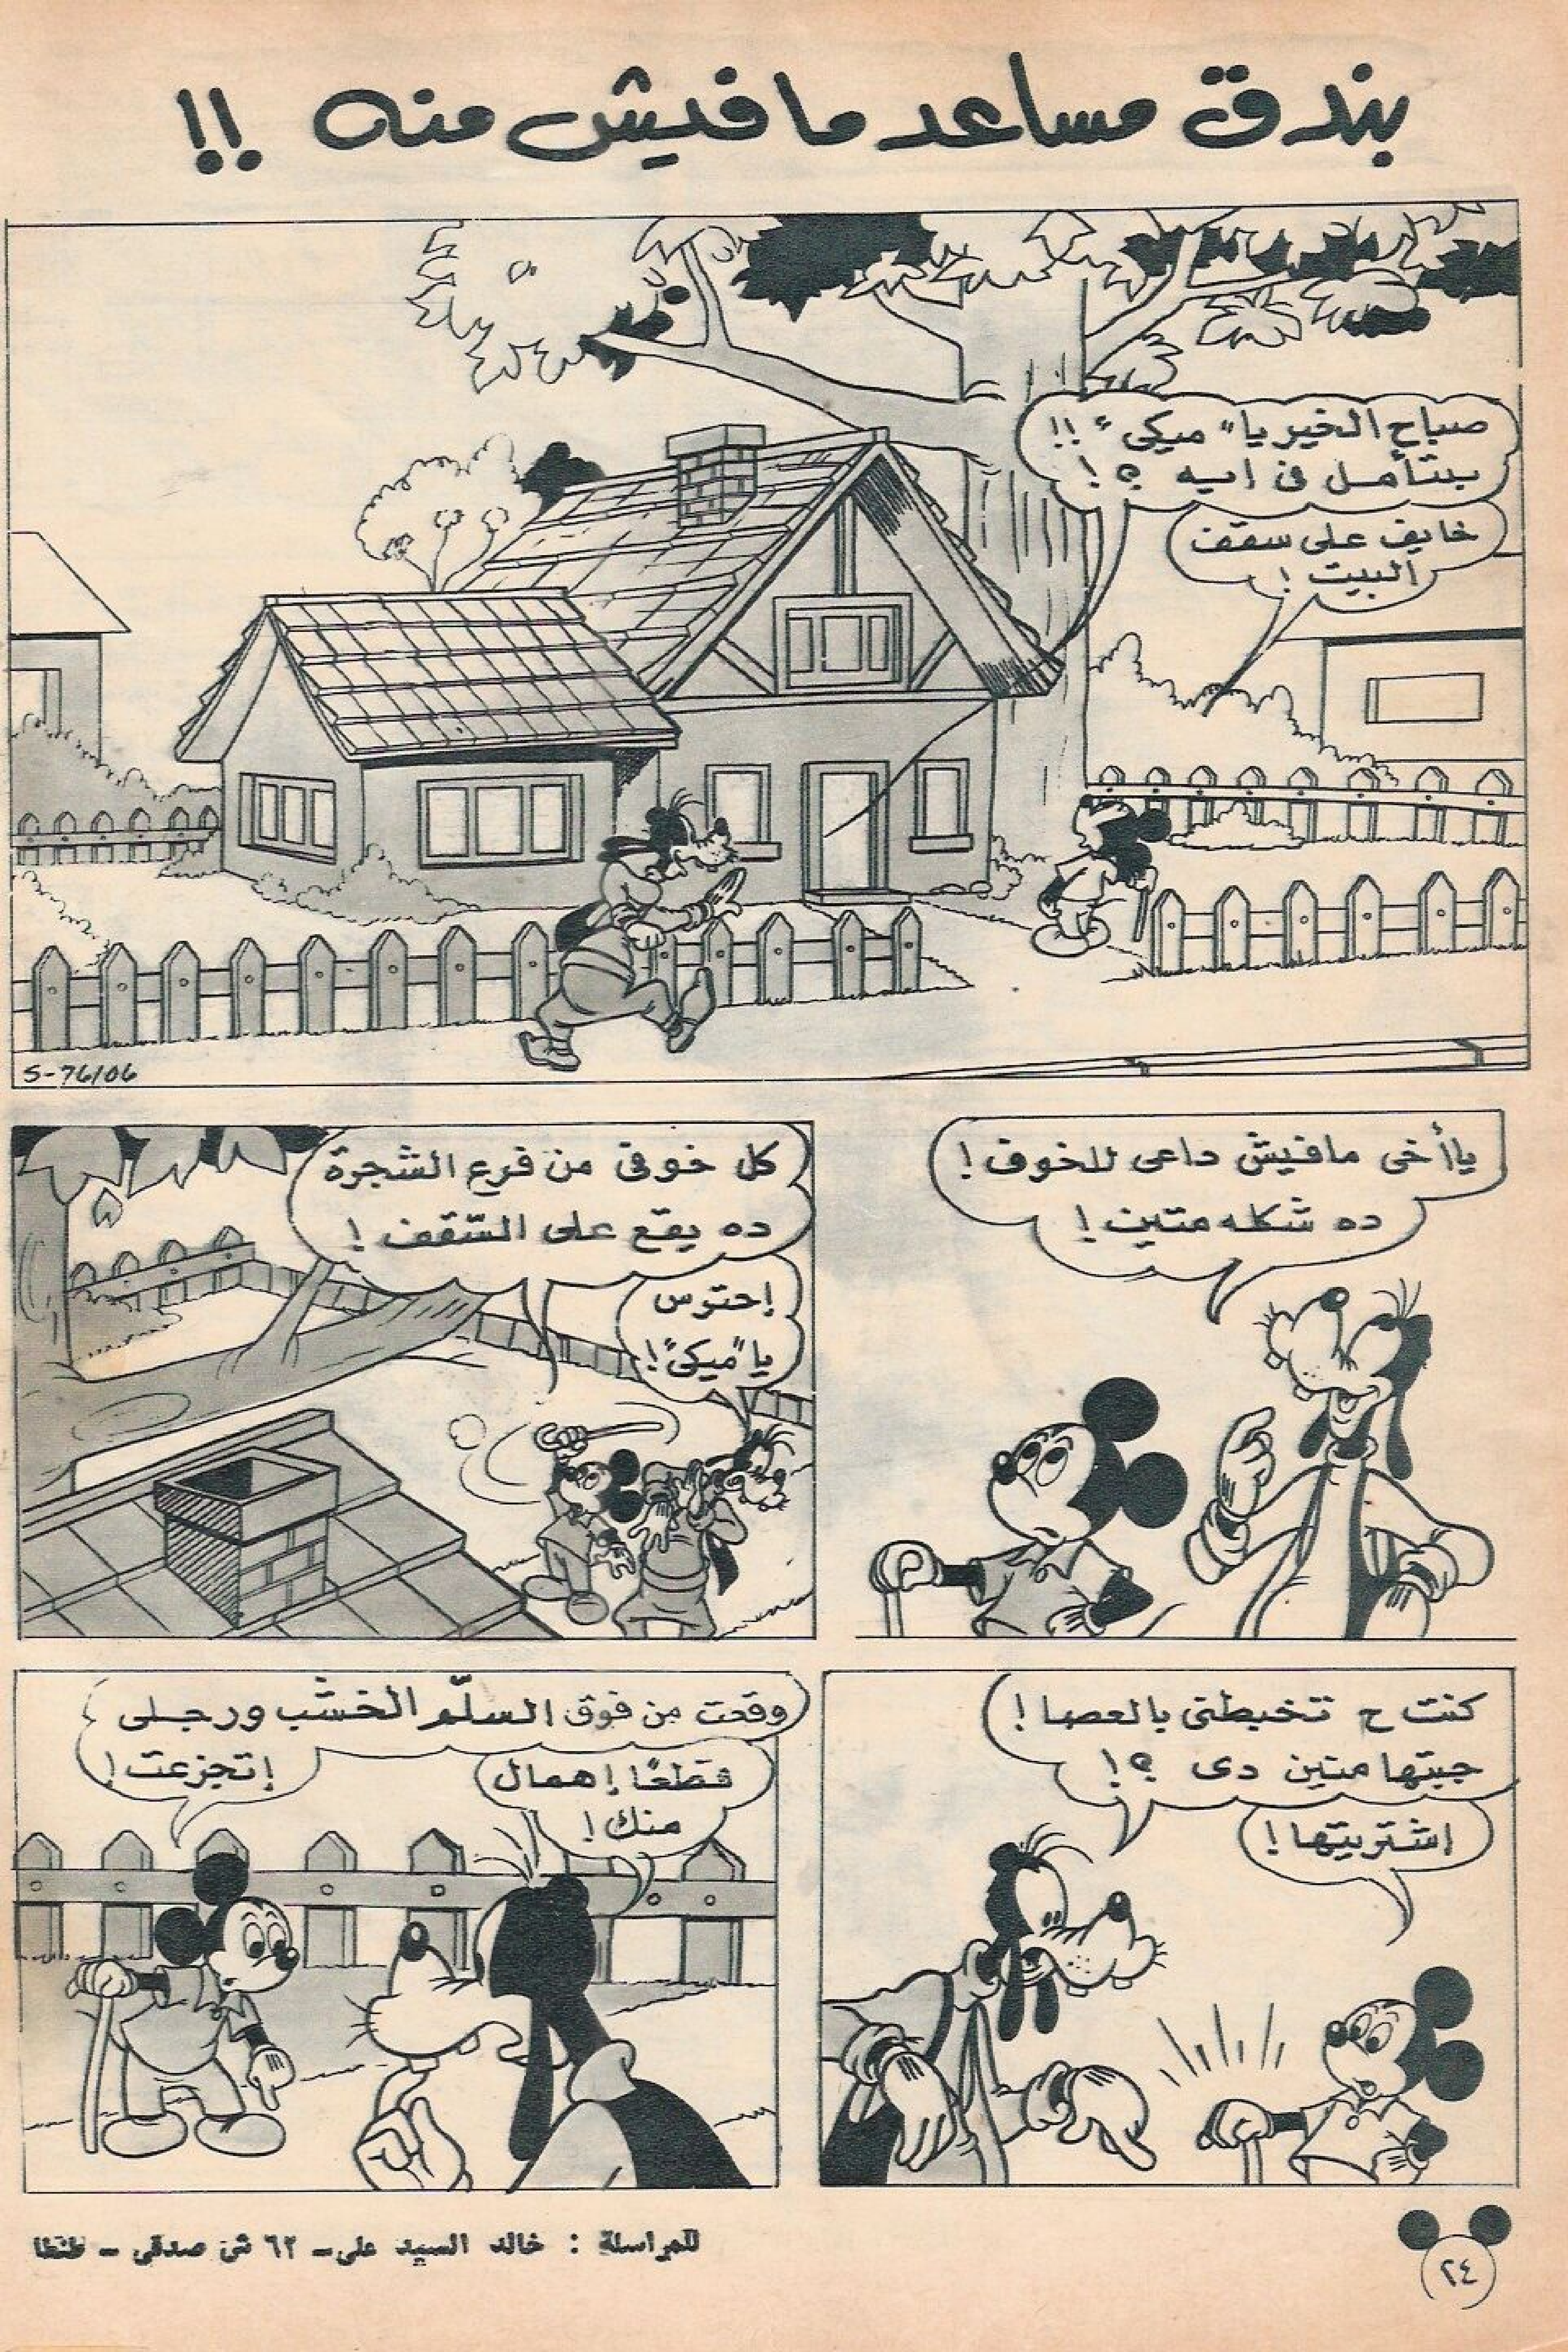 بندق مساعد مافيش منه !!
صباح الخير يا "ميكى" !!
بتتأمل فى ايه ؟!
خايف على سقف
البيت !
S-76106
يا أخى مافيش داعى للخوف !
ده شكله متين !
كل خوفى من فرع الشجرة
ده يقع على السّقف !
إحترس
يا "ميكى" !
كنت ح تخبطنى بالعصا !
جبتها منين دى ؟!
اشتريتها !
وقعت من فوق السلّم الخشب ورجلى
إتجزعت !
قطعًا إهمال
منك !
للمراسلة : خالد السيد على - ٦٢ ش صدقى - طنطا
٢٤